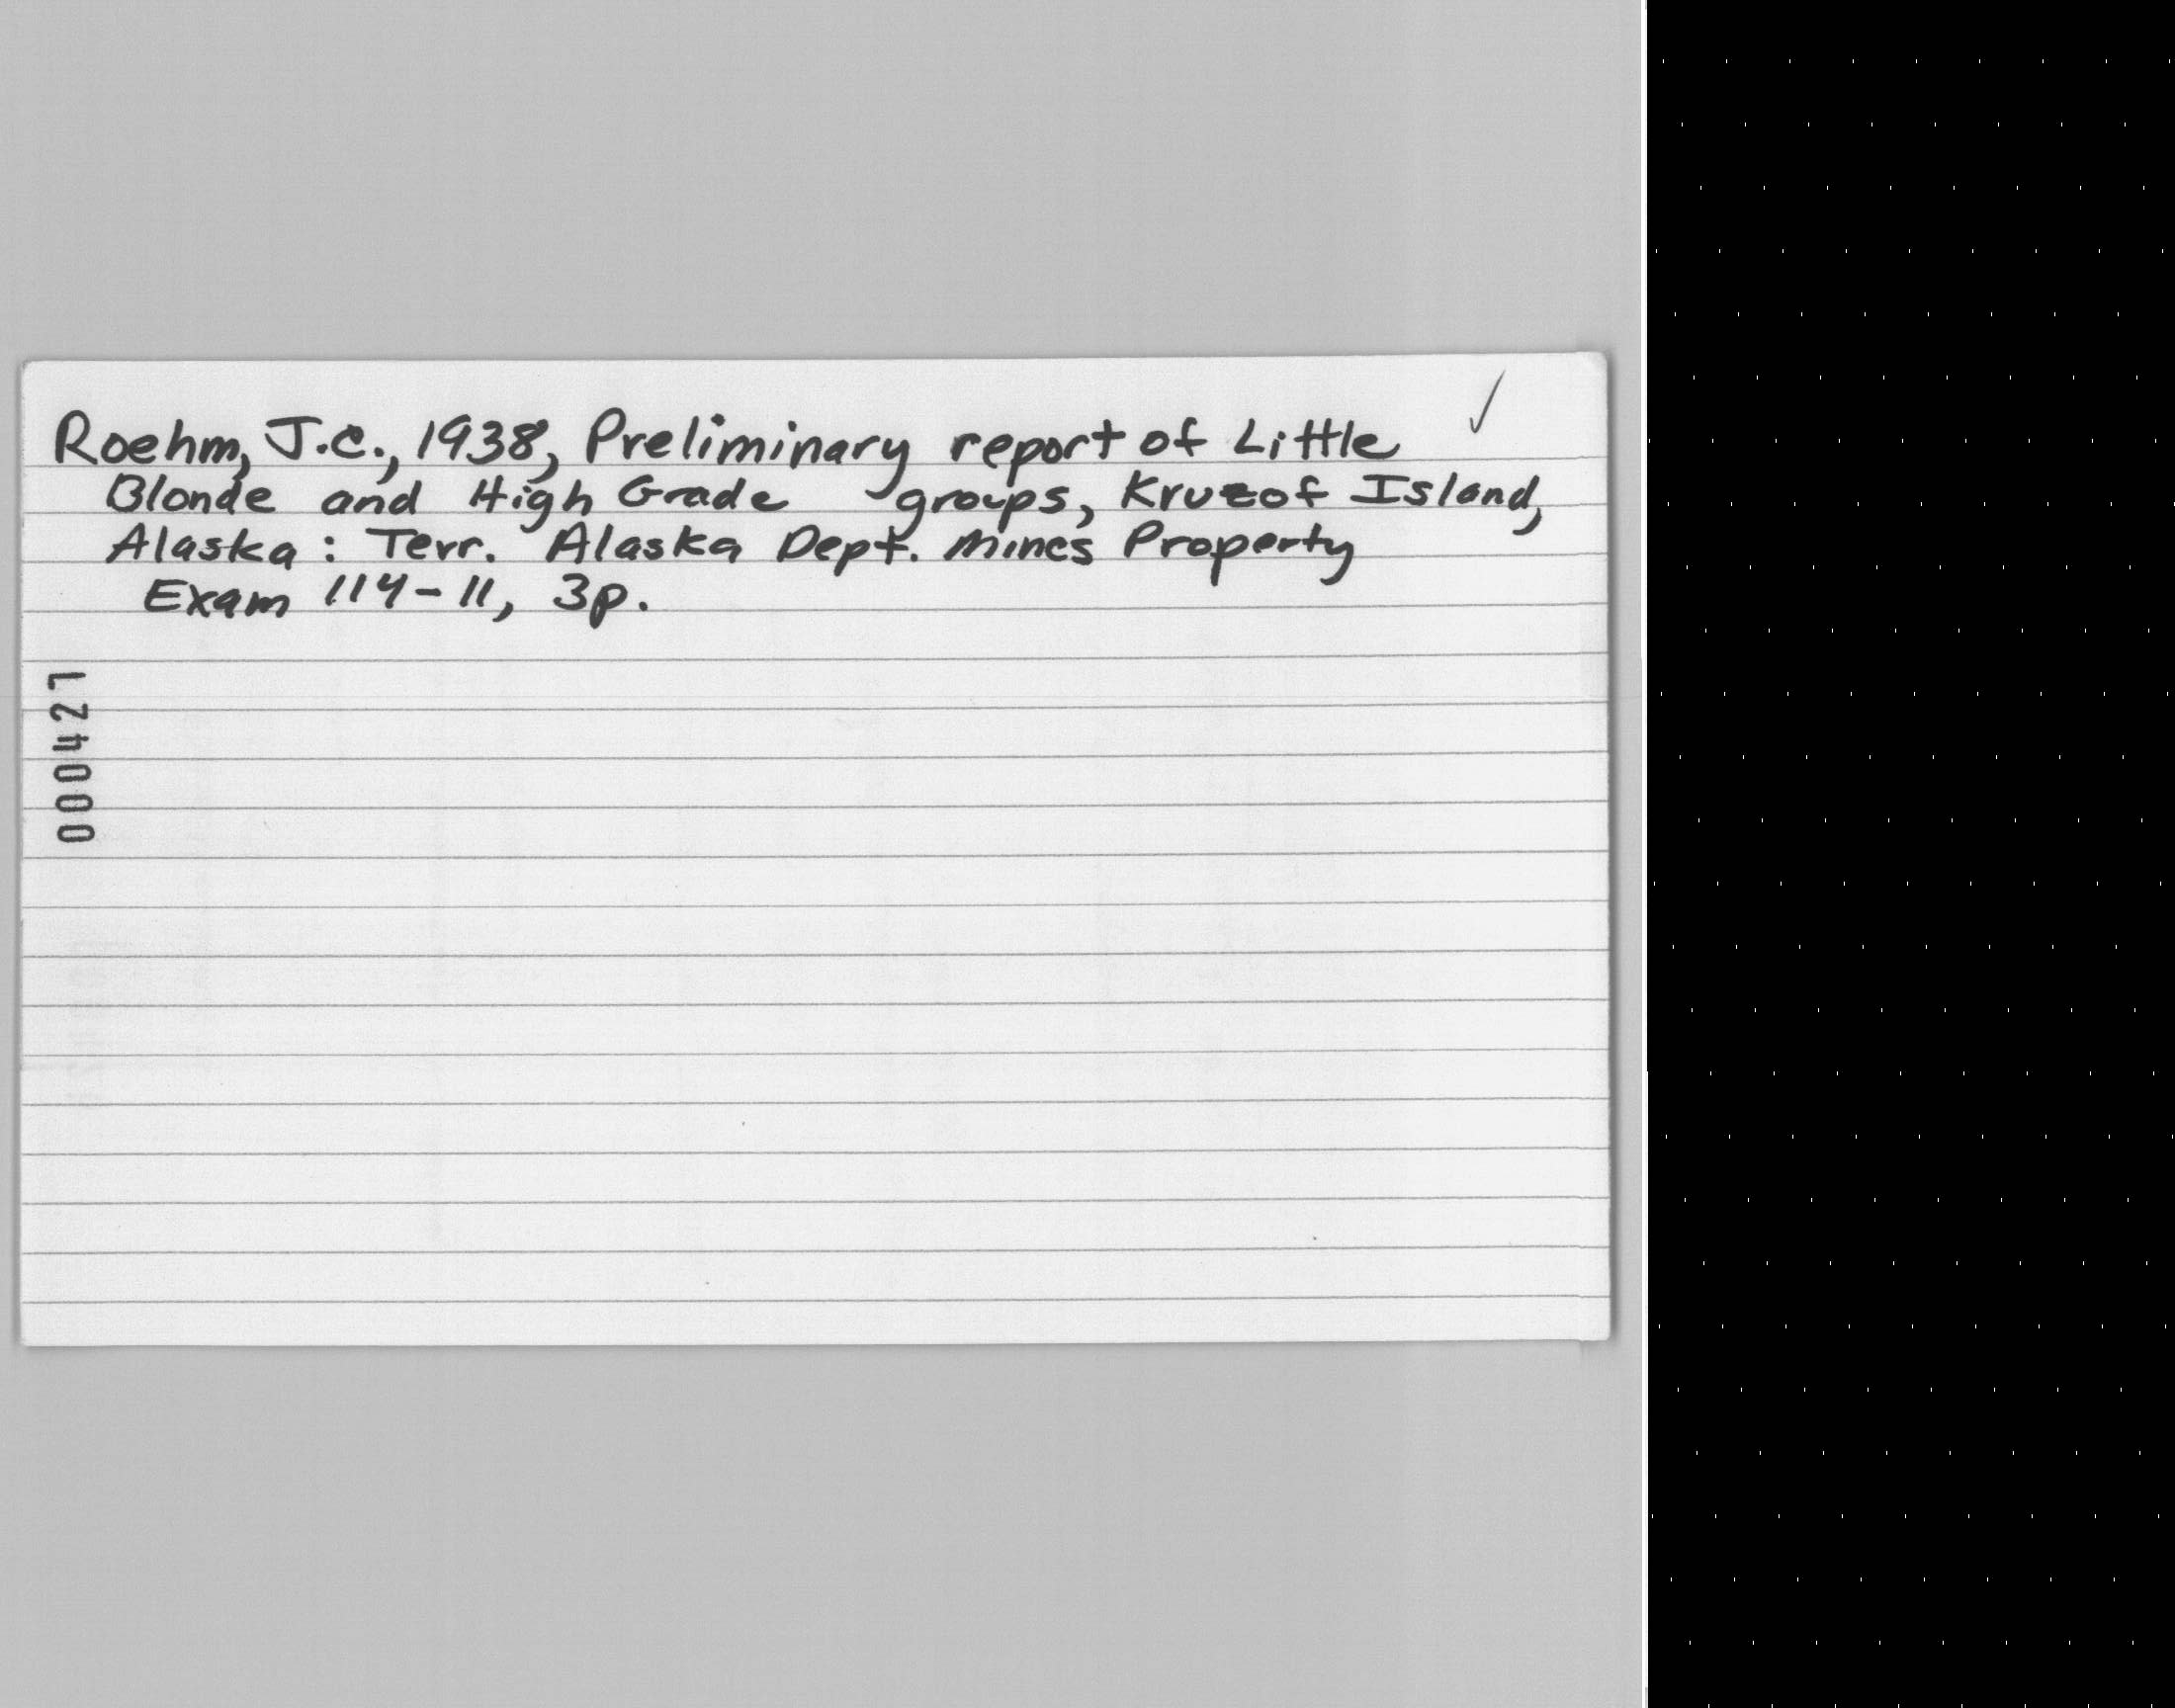 Roehm, J.C., 1938, Preliminary report of Little
Blonde and High Grade groups, Kruzof Island,
Alaska : Terr. Alaska Dept. Mines Property
Exam 114-11, 3p.
000427